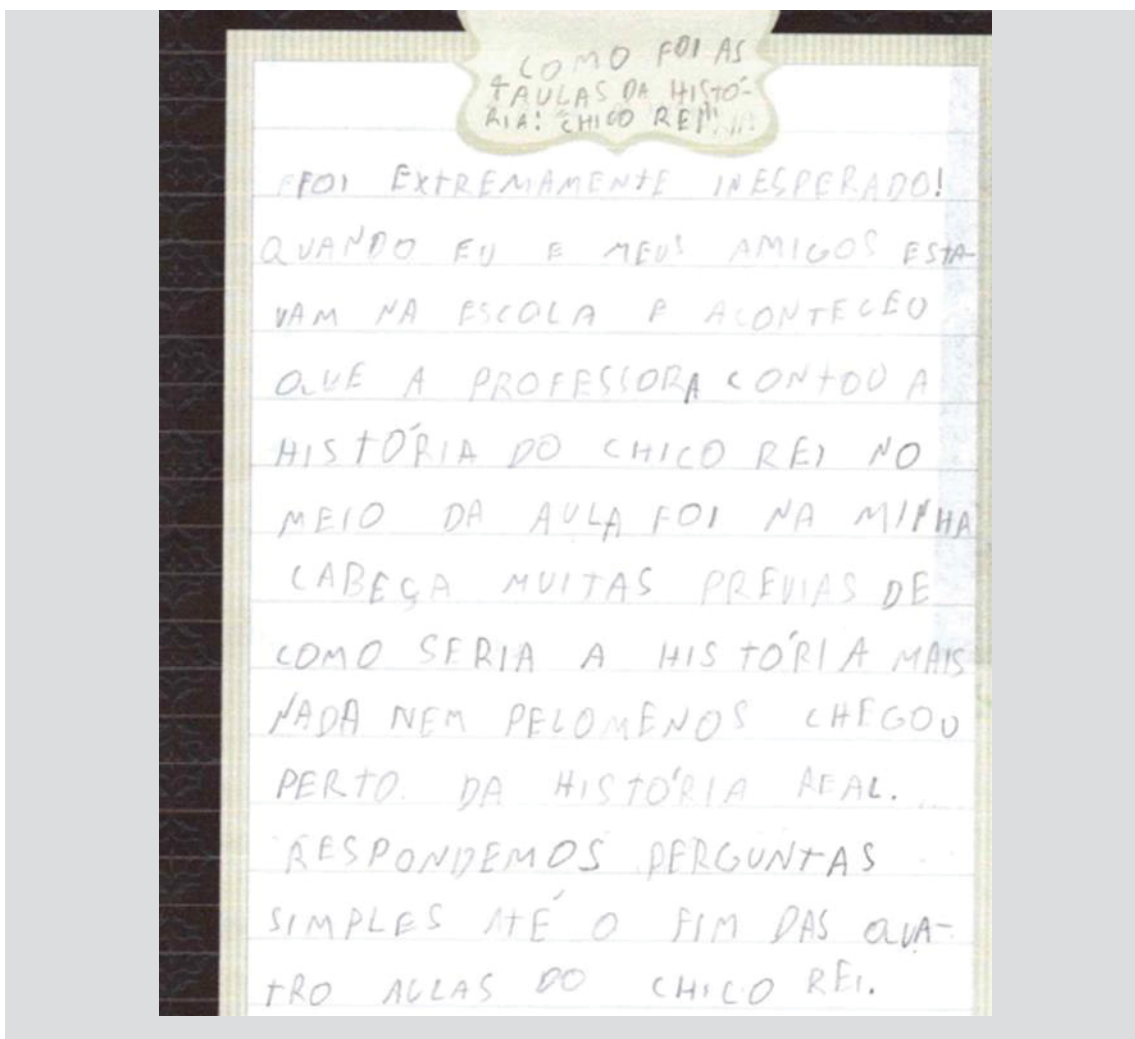 COMO FOI AS
4 AULAS DA HISTÓ-
RIA: CHICO REI
FOI EXTREMAMENTE INESPERADO!
QUANDO EU E MEUS AMIGOS ESTA-
VAM NA ESCOLA E ACONTECEO
QUE A PROFESSORA CONTOU A
HISTÓRIA DO CHICO REI NO
MEIO DA AULA FOI NA MINHA
CABEÇA MUITAS PREVIAS DE
COMO SERIA A HISTÓRIA MAIS
NADA NEM PELOMENOS CHEGOU
PERTO. DA HISTÓRIA REAL.
RESPONDEMOS PERGUNTAS
SIMPLES ATÉ O FIM DAS QUA-
TRO AULAS DO CHICO REI.